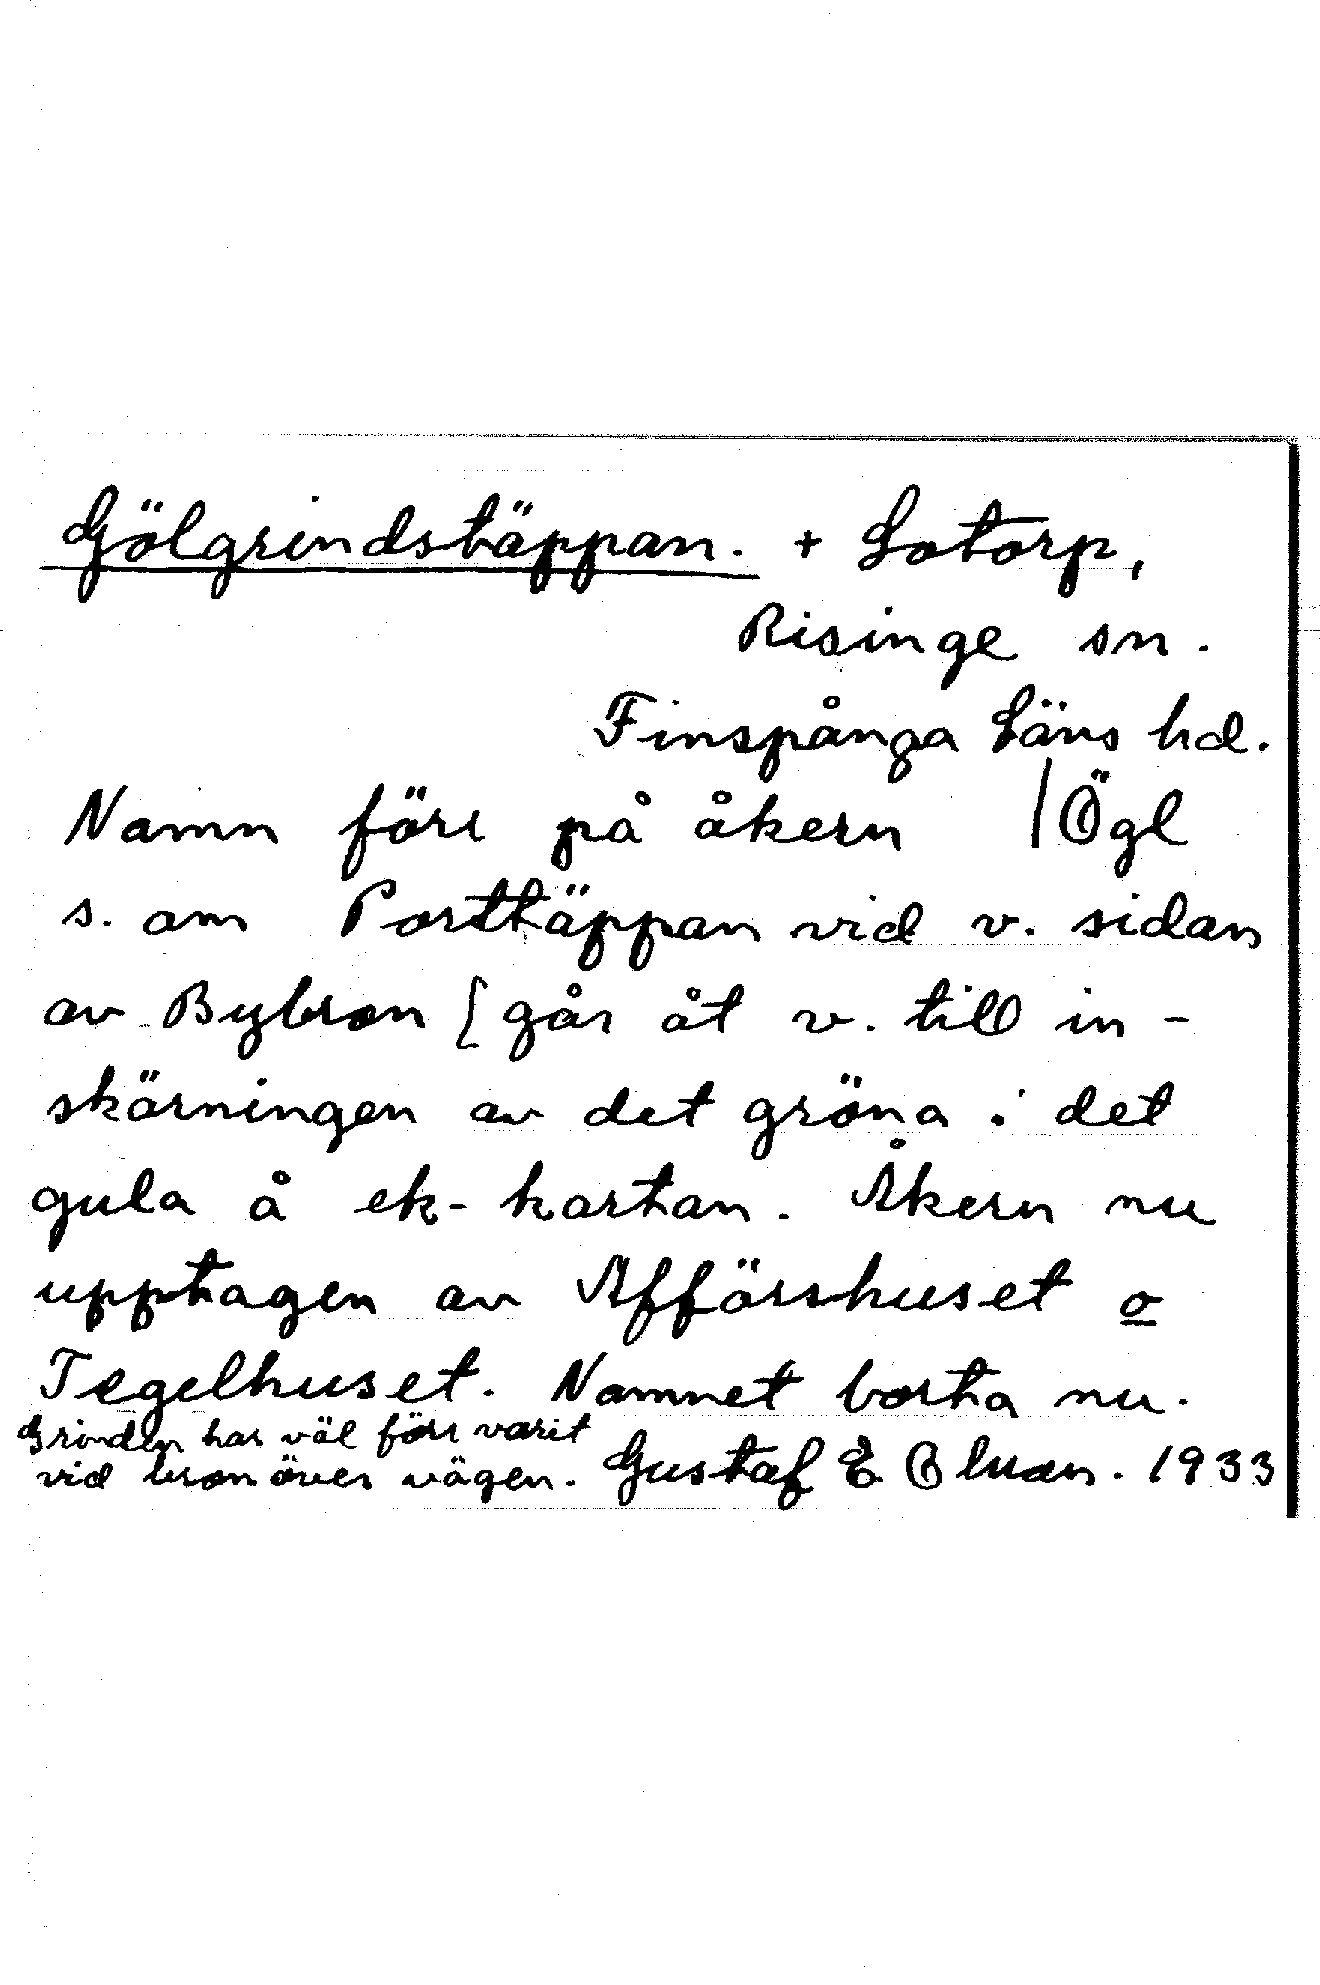 Gölgrindstäppan. + Lotorp,
Risinge sn.
Finspånga Läns hd.
Namn förr på åkern | Ögl
s. om Porttäppan vid v. sidan
av Bybron [ går åt v. till in-
skärningen av det gröna i det
gula å ek-kartan. Åkern nu
upptagen av Affärshuset o
Tegelhuset. Namnet borta nu.
Grinden har väl förr varit
vid bron över vägen. Gustaf E Blman. 1933